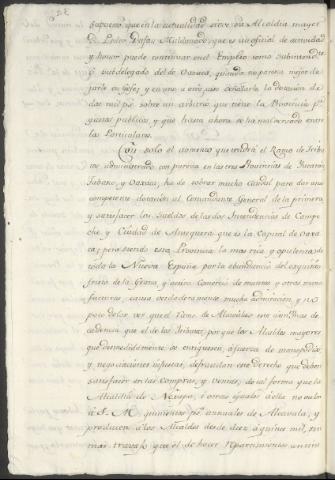 supuesto que en la actualidad sirve esa Alcaldia mayor
Dn. Pedro Dufau Maldonado, que es un oficial de actividad
y honor puede continuar en el Empleo como subintendte.
ó subdelegado del de Oaxaca, quando no parezca mejor de-
jarlo en Gefe; y en uno, u otro caso señalarle la dotacion de
dos mil ps. sobre un arbitrio que tiene la Provincia pa.
gastos publicos, y que hasta ahora se ha malversado entre
los Particulares.
Con solo el aumento que tendrá el Ramo de Tribu-
tos, administrado con pureza en las tres Provincias de Yucatan,
Tabasco, y Oaxaca, ha de sobrar mucho caudal para dar una
competente dotacion al Comandante General de la primera
y satisfacer los sueldos de las dos Intendencias de Campe-
che, y Ciudad de Antequera que es la Capital de Oaxa-
ca; pero siendo esta Provincia la mas rica, y opulenta de
toda la Nueva España por la abundancia del exquisito
fruto de la Grana, y activo Comercio de mantas, y otras manu-
facturas, causa verdaderamente mucha admiracion, y no
poco dolor ver que el Ramo de Alcavalas está en mas de-
cadencia que el de los Tributos, porque los Alcaldes mayores
que desmedidamente se enriquecen, à fuerza de monopolios,
y negociaciones injustas, defraudan este derecho que deben
satisfacer en las compras, y ventas, de tal forma que la
Alcaldia de Nexapa, i otras iguales à ella no vale
à S. M. quinientos ps. annuales de Alcavala; y
producen à los Alcaldes desde diez à quince mil, sin
mas trabajo que el de hacer repartimientos entre